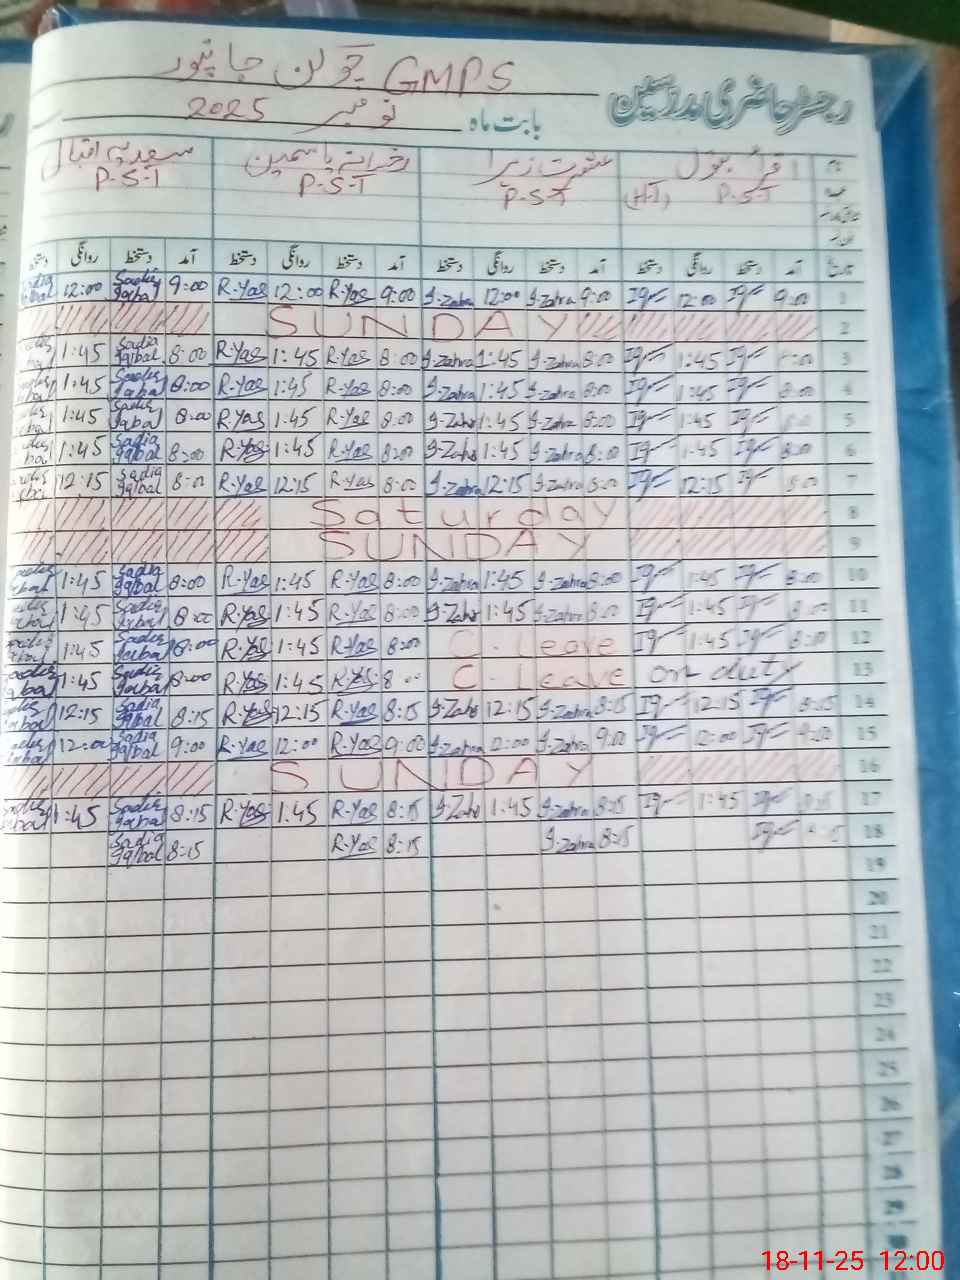 GMPS چوکن جانپور
رجسٹر حاضری مدرسین
بابت ماہ نومبر 2025
نام اقراء بتول عشرت زہرا رخسانہ یاسمین سعدیہ اقبال
عہدہ P-S-T (H-T) P-S-T P-S-T P-S-T
تاریخ آمد دستخط روانگی دستخط آمد دستخط روانگی دستخط آمد دستخط روانگی دستخط آمد دستخط روانگی دستخط
Sadia Iqbal 12:00 Sadia Iqbal 9:00 R-Yas 12:00 R-Yas 9:00 I-Zahra 12:00 I-Zahra 9:00 Iq 12:00 Iq 9:00 1
SUNDAY 2
1:45 Sadia Iqbal 8:00 R-Yas 1:45 R-Yas 8:00 I-Zahra 1:45 I-Zahra 8:00 Iq 1:45 Iq 8:00 3
1:45 Sadia Iqbal 8:00 R-Yas 1:45 R-Yas 8:00 I-Zahra 1:45 I-Zahra 8:00 Iq 1:45 Iq 8:00 4
1:45 Sadia Iqbal 8:00 R-Yas 1:45 R-Yas 8:00 I-Zahr 1:45 I-Zahra 8:00 Iq 1:45 Iq 5
1:45 Sadia Iqbal 8:00 R-Yas 1:45 R-Yas 8:00 I-Zahr 1:45 I-Zahra 8:00 Iq 1:45 Iq 8:00 6
12:15 Sadia Iqbal 8:00 R-Yas 12:15 R-Yas 8:00 I-Zahra 12:15 I-Zahra 8:00 Iq 12:15 Iq 8:00 7
Saturday 8
SUNDAY 9
1:45 Sadia Iqbal 8:00 R-Yas 1:45 R-Yas 8:00 I-Zahra 1:45 I-Zahra 8:00 Iq 1:45 Iq 8:00 10
1:45 Sadia Iqbal 8:00 R-Yas 1:45 R-Yas 8:00 I-Zahr 1:45 I-Zahra 8:00 Iq 1:45 Iq 8:00 11
1:45 Sadia Iqbal 8:00 R-Yas 1:45 R-Yas 8:00 C-Leave Iq 1:45 Iq 8:00 12
1:45 Sadia Iqbal 8:00 R-Yas 1:45 R-Yas 8:00 C-Leave on duty 13
12:15 Sadia Iqbal 8:15 R-Yas 12:15 R-Yas 8:15 I-Zahr 12:15 I-Zahra 8:15 Iq 12:15 Iq 8:15 14
12:00 Sadia Iqbal 9:00 R-Yas 12:00 R-Yas 9:00 I-Zahra 12:00 I-Zahra 9:00 Iq 12:00 Iq 9:00 15
SUNDAY 16
1:45 Sadia Iqbal 8:15 R-Yas 1:45 R-Yas 8:15 I-Zahr 1:45 I-Zahra 8:15 Iq 1:45 Iq 8:15 17
Sadia Iqbal 8:15 R-Yas 8:15 I-Zahra 8:15 Iq 8:15 18
19
20
21
22
23
24
25
26
27
28
29
30
18-11-25 12:00